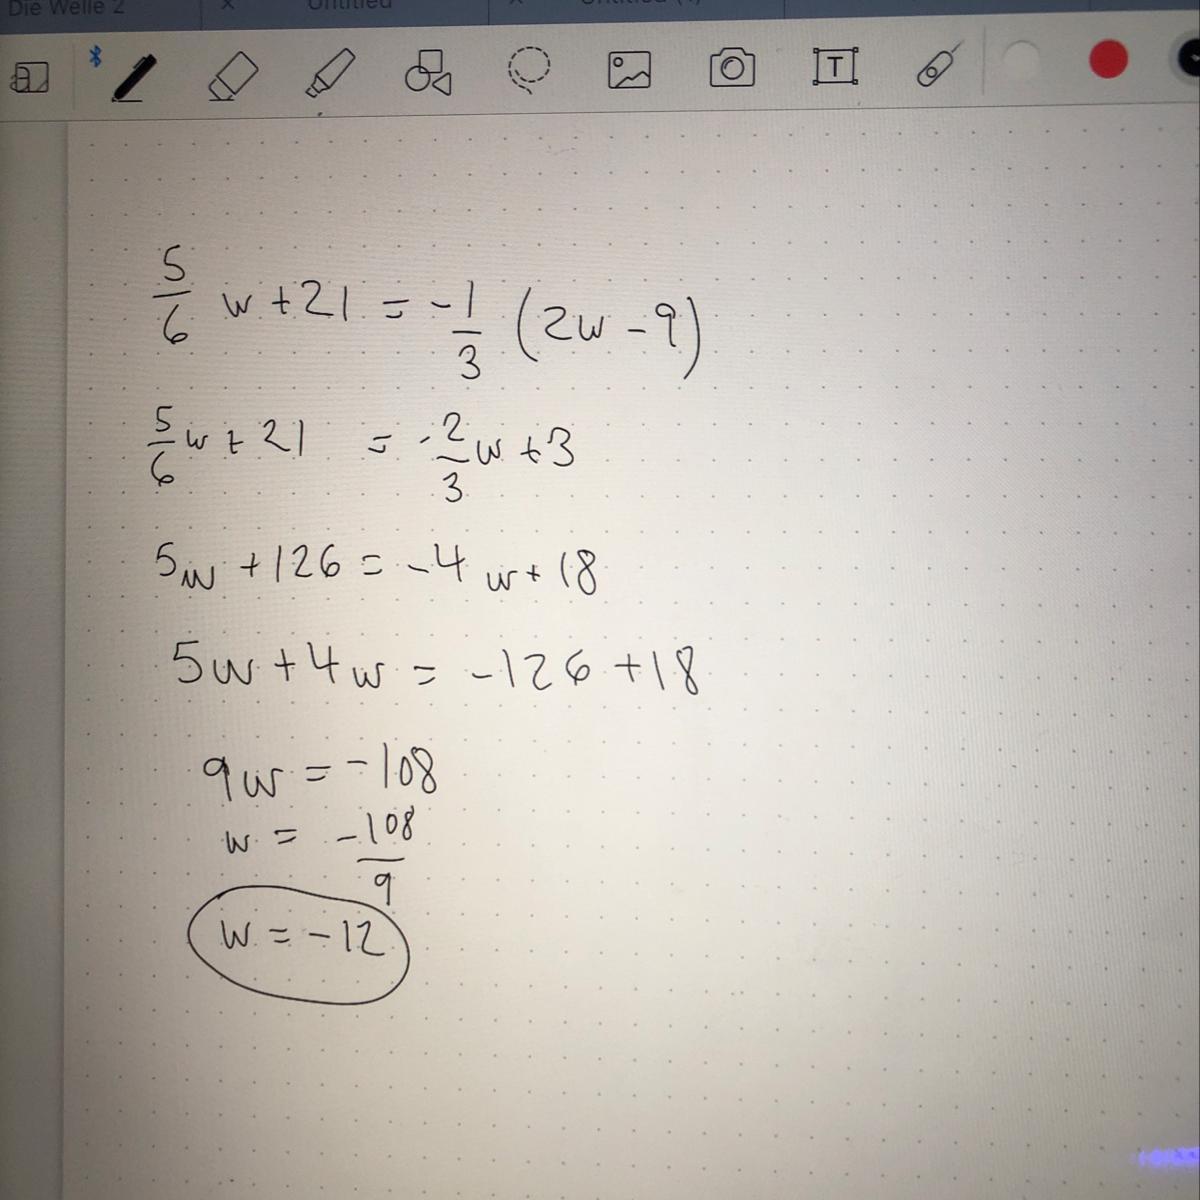 Die Welle 2 × Untitled
5/6 w + 21 = -1/3 (2w - 9)
5/6 w + 21 = -2/3 w + 3
5w + 126 = -4w + 18
5w + 4w = -126 + 18
9w = -108
w = -108/9
w = -12